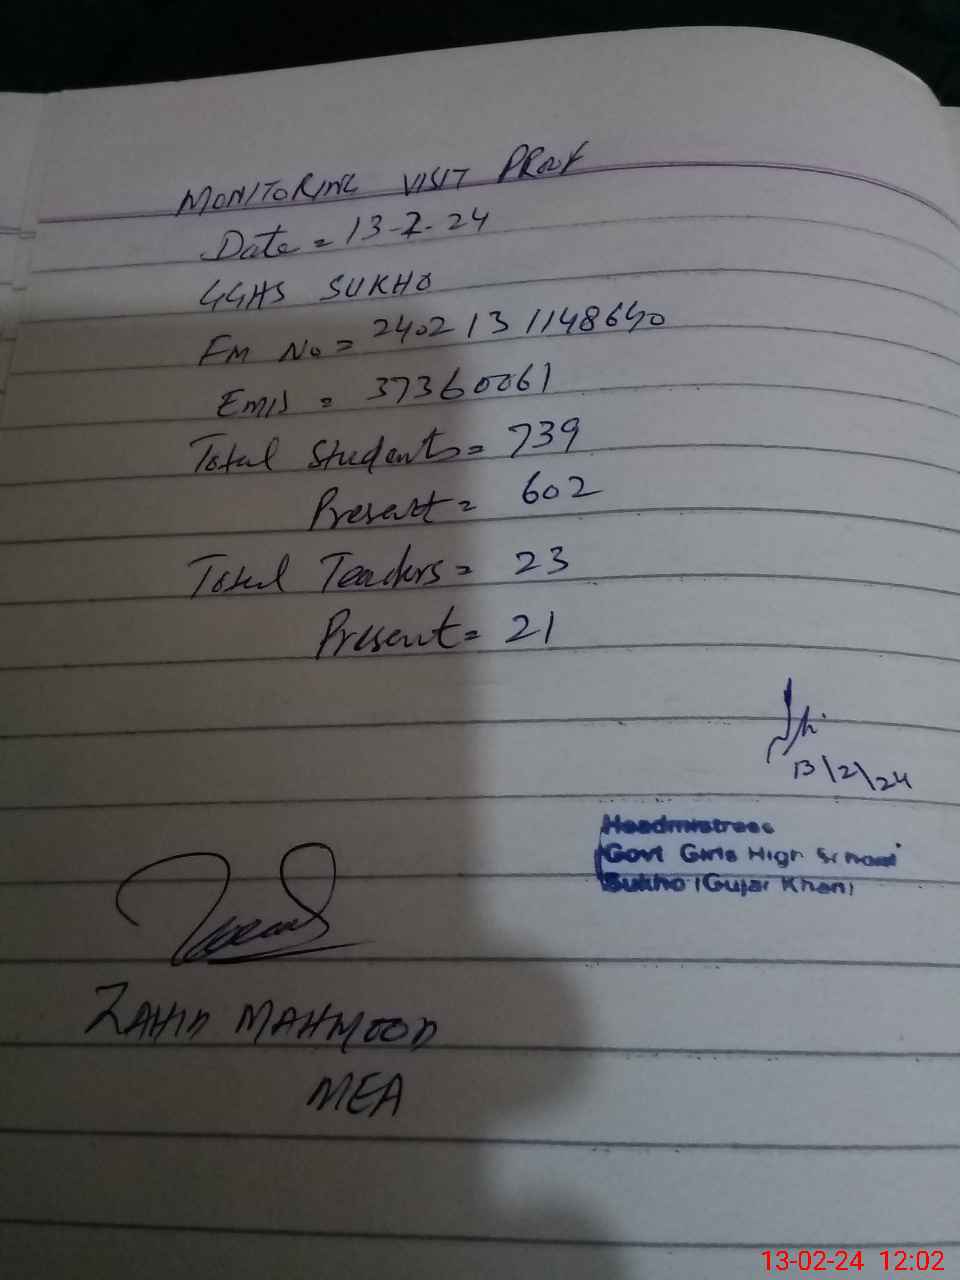 MONITORING VISIT PROOF
Date = 13-2-24
GGHS SUKHO
FM No = 2402131148640
EMIS = 37360061
Total Students = 739
Present = 602
Total Teachers = 23
Present = 21
13/2/24
Headmistress
Govt Girls High School
Sukho (Gujar Khan)
ZAHID MAHMOOD
MEA
13-02-24 12:02